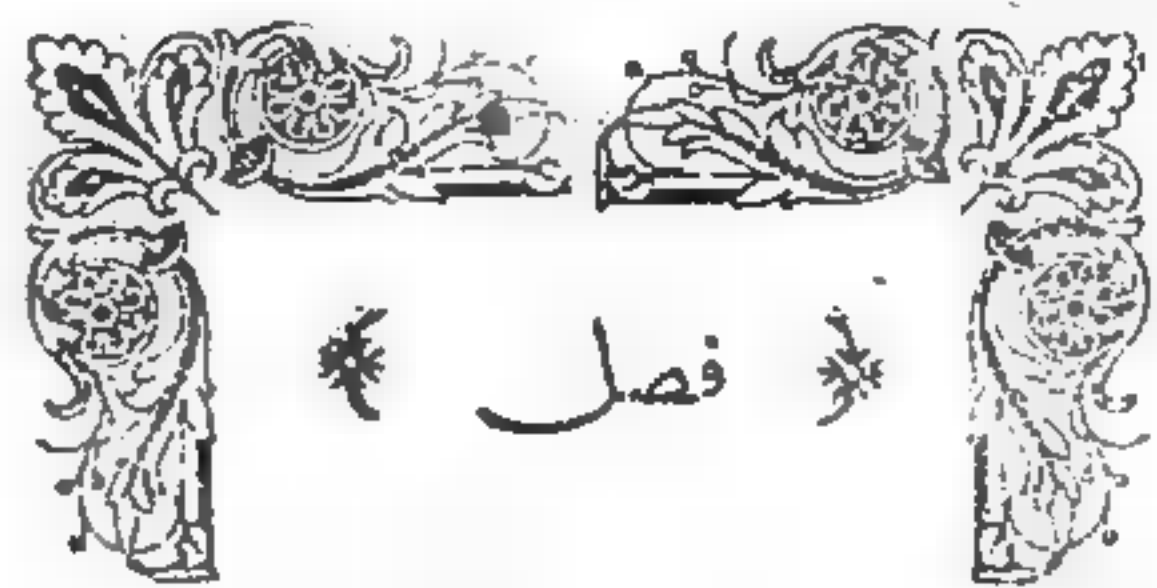 ﴿ فصل ﴾